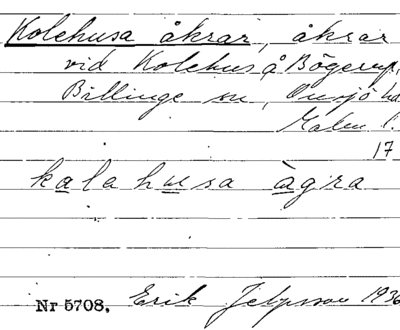 Kolehusa åkrar, åkrar
vid Kolehus å Bögerup,
Billinge sn, Onsjö hd
Malm. l.
17
kalahusa àgra
Nr 5708. Erik Jeppsson 1936